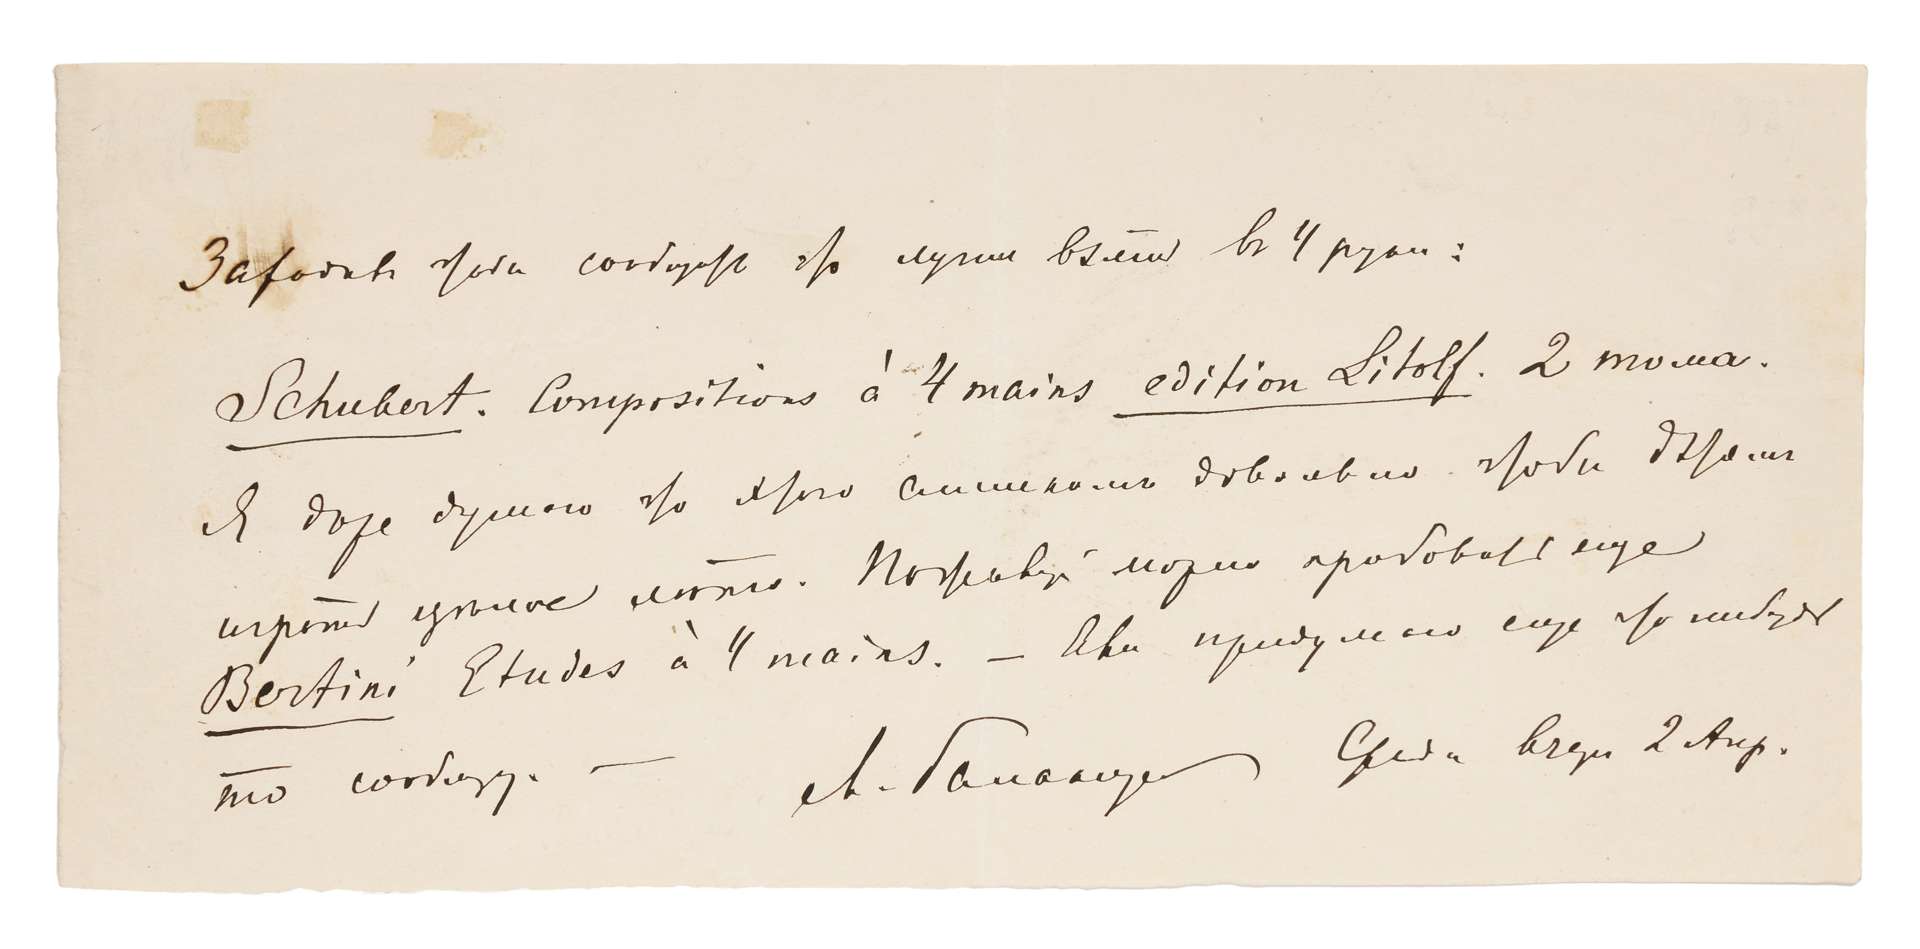 чтобы сообщить что лучше взять въ 4 руки:
Schubert. Compositions à 4 mains edition Litolf. 2 тома.
Я даже думаю что этого слишкомъ довольно чтобы дѣтямъ
играть цѣлое лѣто. Пожалуй можно пробовать еще
Bertini Etudes à 4 mains. — придумаю еще что нибудь
то сообщу. —
Среда 2 Апр.